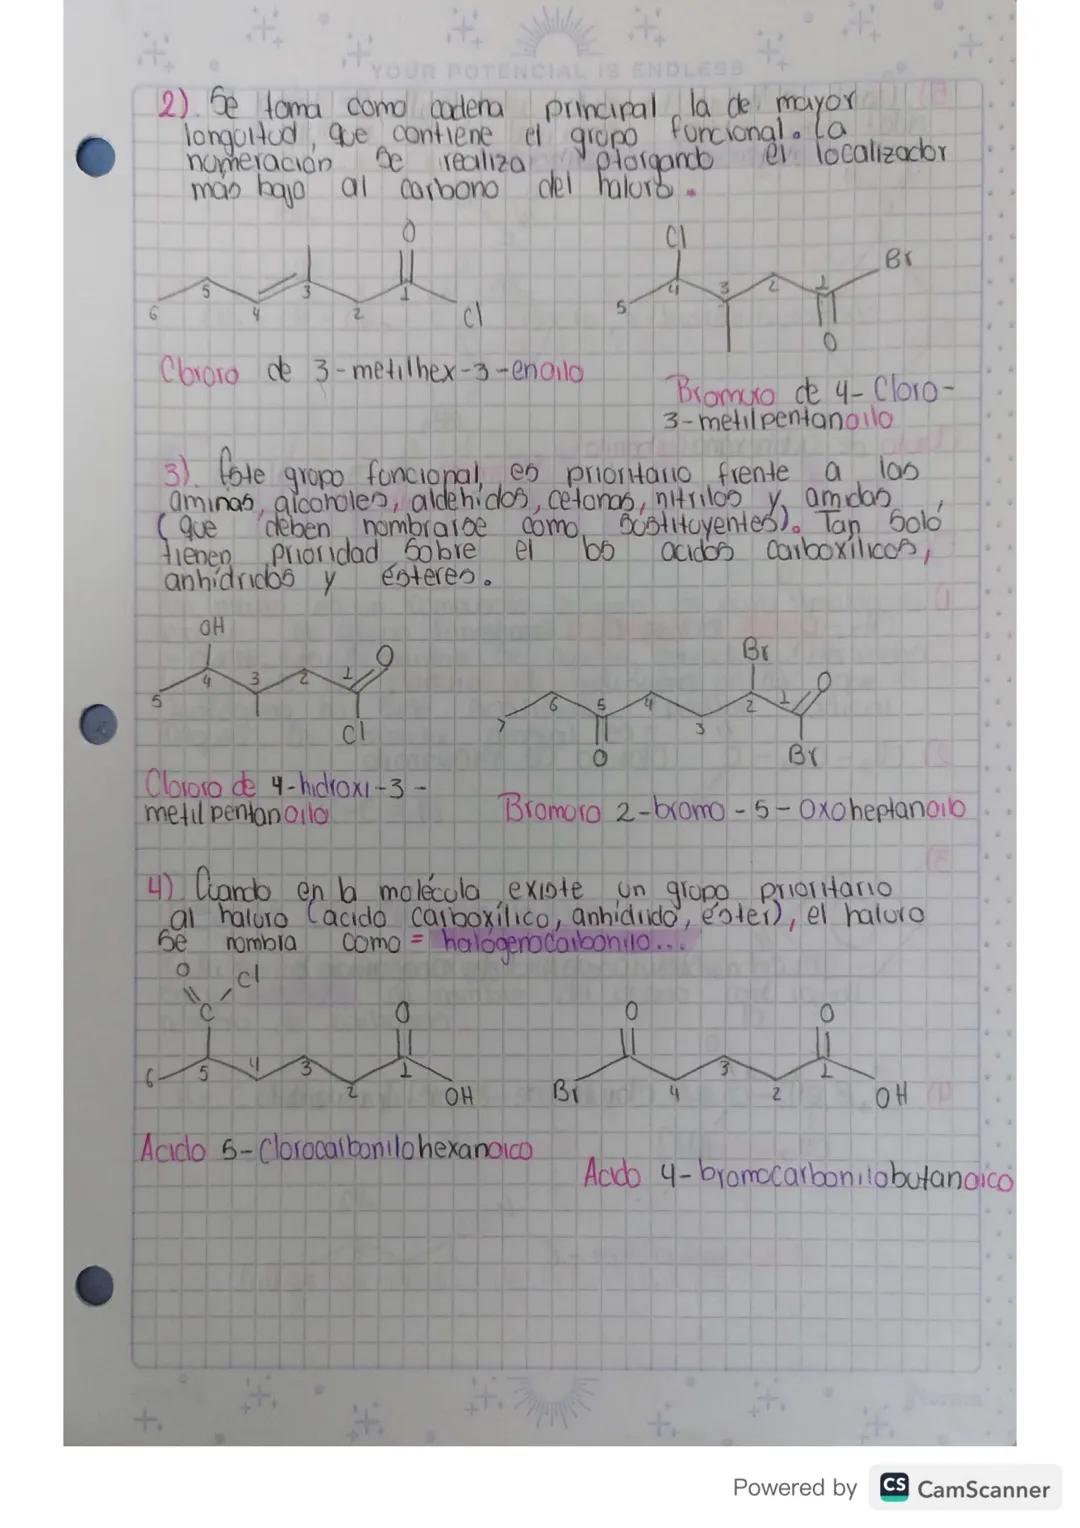 YOUR POTENCIAL IS ENDLESS
2). Se toma como cadena principal la de mayor
longuitud, que contiene el grupo funcional. La
numeración se realiza otorgando el localizador
más bajo al carbono del haluro.
O
Cl
Br
6 5 4 3 2 1 Cl
5 4 3 2 1
O
Cloruro de 3-metilhex-3-enoilo
Bromuro de 4-Cloro-
3-metilpentanoilo
3). Este grupo funcional, es prioritario frente a las
aminas, alcoholes, aldehidos, cetonas, nitrilos y amidas
(que deben nombrarse como sustituyentes). Tan solo
tienen prioridad sobre el los acidos carboxílicos,
anhídridos y ésteres.
OH
O
5 4 3 2 1
Cl
Br
O
7 6 5 4 3 2 1
O
Br
Cloruro de 4-hidroxi-3-
metilpentanoilo
Bromuro 2-bromo-5-Oxoheptanoilo
4) Cuando en la molécula existe un grupo prioritario
al haluro (acido carboxílico, anhidrido, éster), el haluro
se nombra como = halógenocarbonilo...
O Cl
C
O
6 5 4 3 2 1
OH
O
O
Br 4 3 2 1 OH
Acido 5-Clorocarbonilohexanoico
Acido 4-bromocarbonilobutanoico
Powered by CS CamScanner